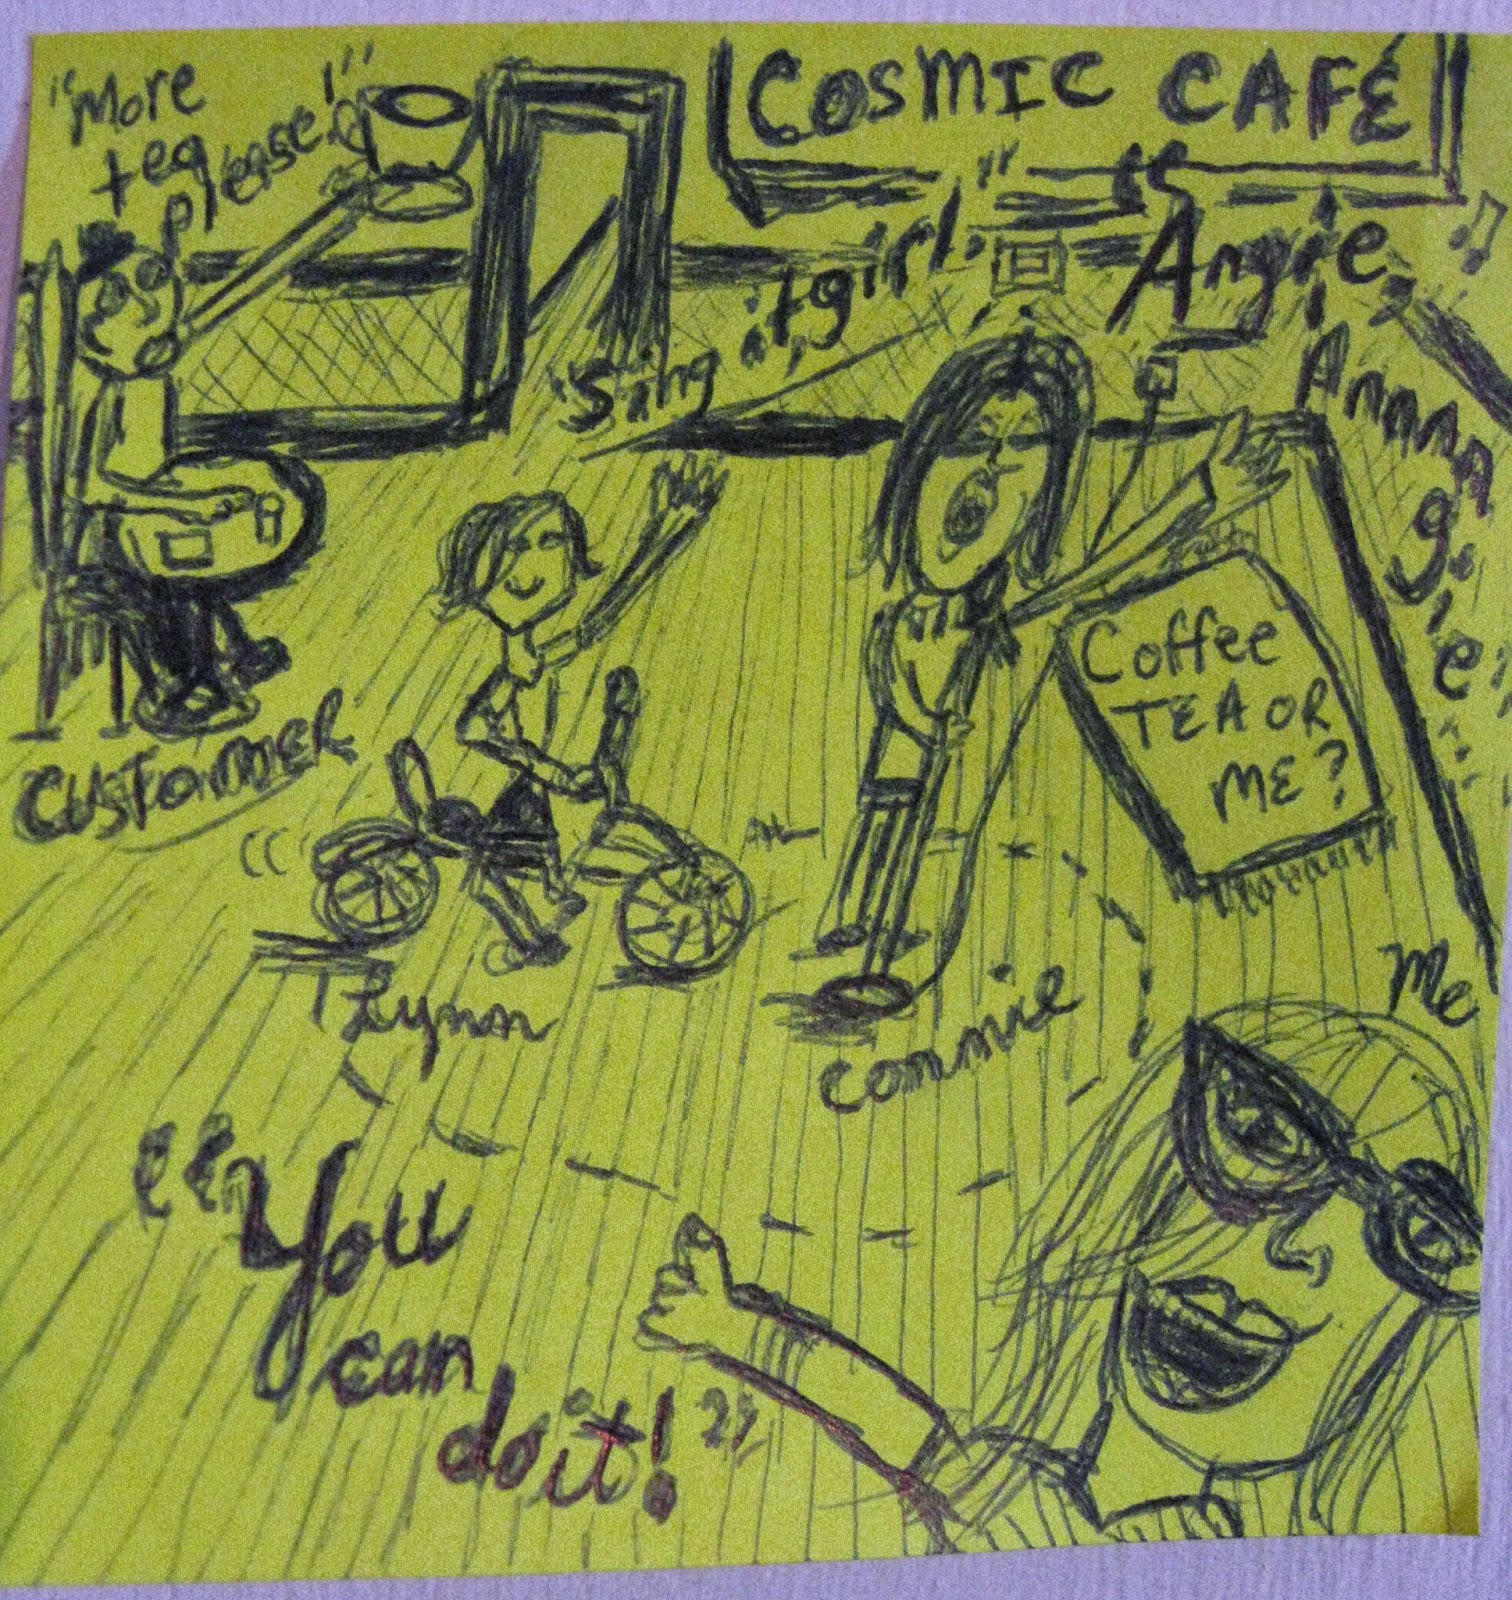 "More
tea
please!"
COSMIC CAFÉ
"Sing it girl."
"Angie,
Annnngie!
CUSTOMER
Coffee
TEA OR
ME?
Lynn
connie
Me
"You
can
do it!"